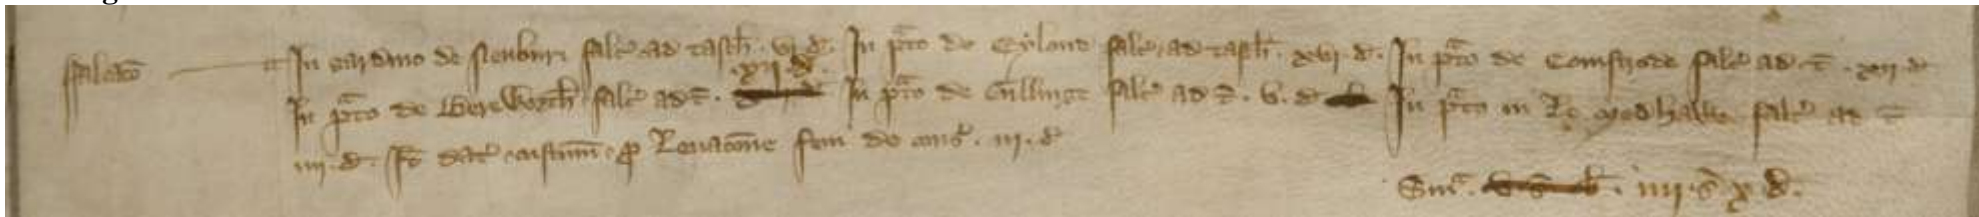 ffalcato
In gardino de Neubur falc ad tasch . vi . d . In p̃to de Eylond falc ad tasch . xvi . d . In p̃to de Comstrode falc ad t̃ . xii . d
. xii . d .
In p̃to de Bereworth falc ad t̃ . In p̃to de Cullinge falc ad t̃ . v . d In p̃to in le Medhalle falc ad t̃
iiii . d . It dat custum p levacõne feni de cons . iii . d
Sma . iiii . s x d .